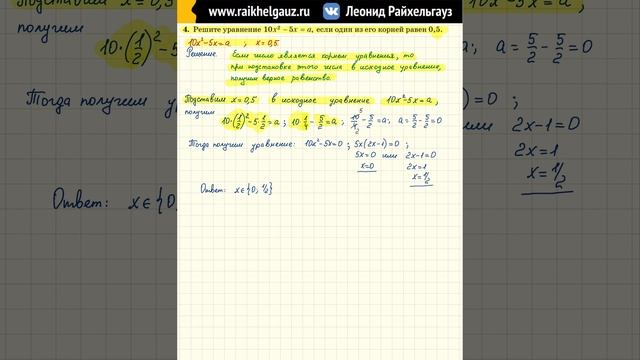 www.raikhelgauz.ru Леонид Райхельгауз
4. Решите уравнение 10x² − 5x = a, если один из его корней равен 0,5.
10x²-5x=a ; x=0,5
Решение. Если число является корнем уравнения, то
при подстановке этого числа в исходное уравнение,
получим верное равенство.
Подставим x=0,5 в исходное уравнение 10x²-5x=a,
получим
10·(1/2)²-5·1/2=a ; 10·1/4-5/2=a ; 10/4-5/2=a; a=5/2-5/2=0
Тогда получим уравнение: 10x²-5x=0 ; 5x(2x-1)=0 ;
5x=0 или 2x-1=0
x=0 2x=1
x=1/2
Ответ: x∈{0, 1/2}